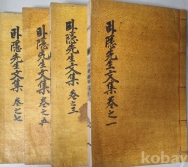 臥隱先生文集卷之一
臥隱先生文集 卷之三
臥隱先生文集 卷之五
臥隱先生文集 卷之七
kobay